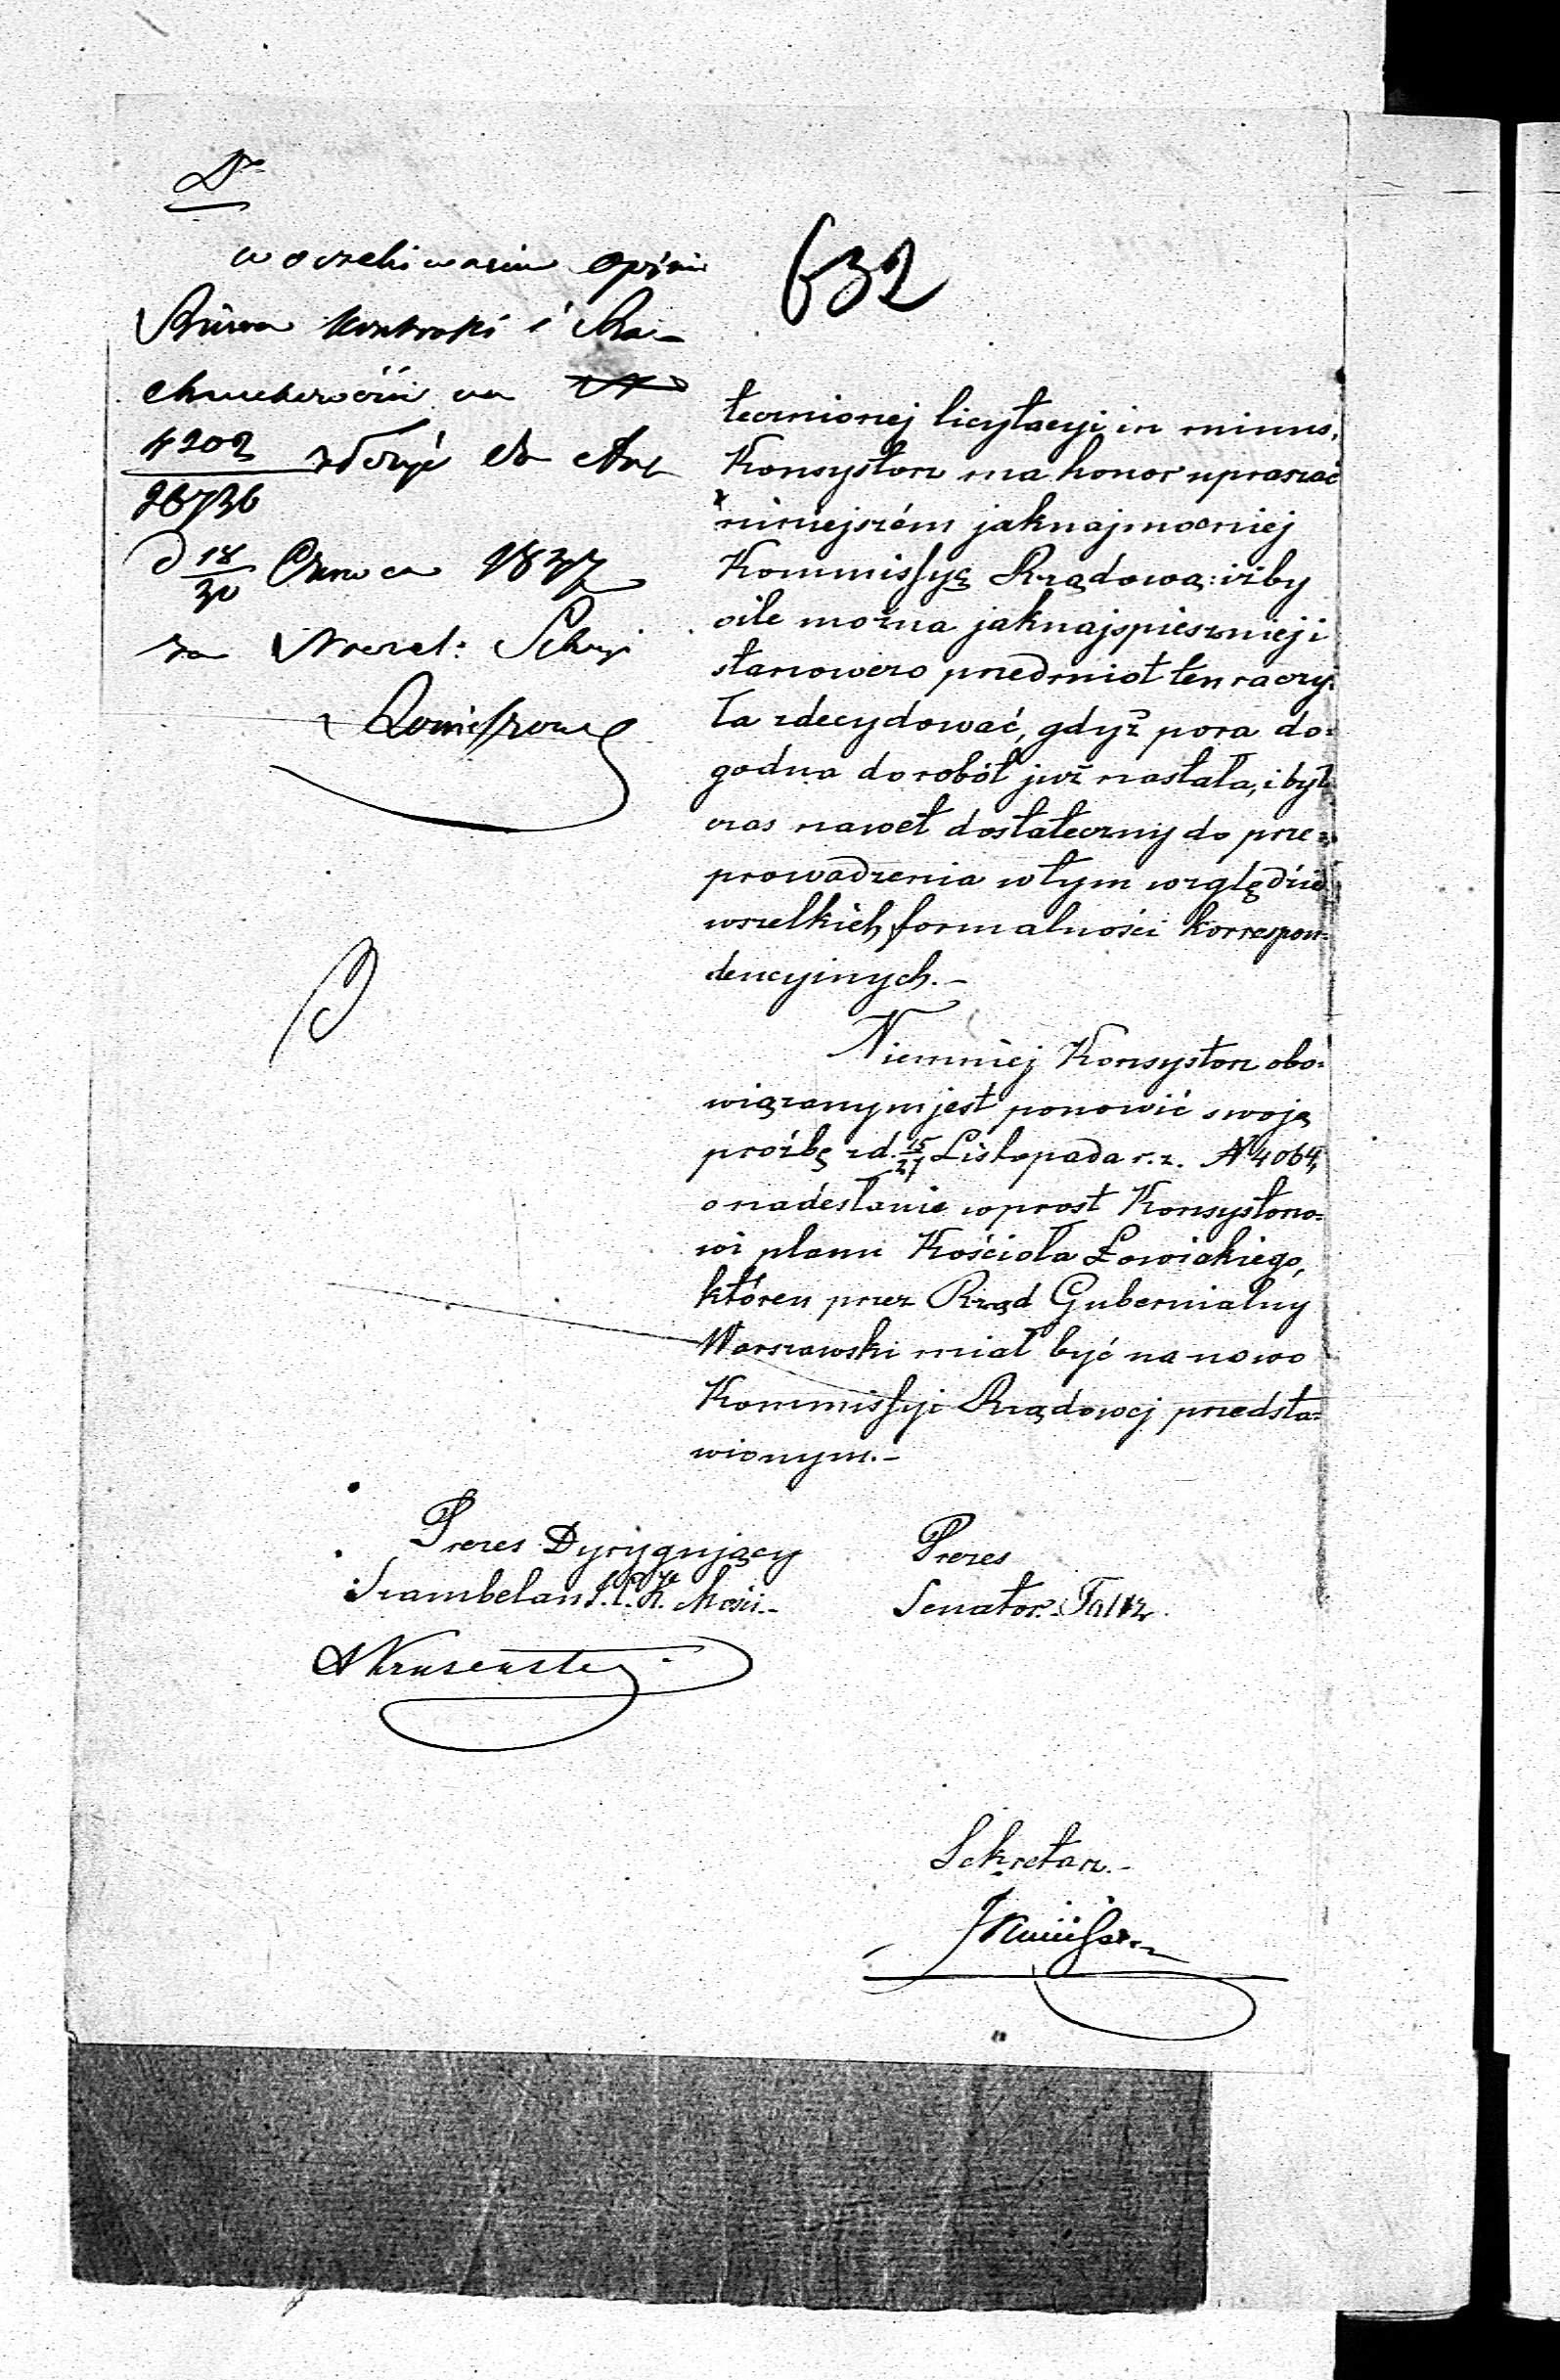 w oczekiwaniu opinii
Biura Kontroli i Ra-
chunkowości na
4202
26736 złożyć do Akt
d 18/30 Czerwca 1837
za Naczel: Sekcyi
632
tecznionej licytacyi in minus,
Konsystorz ma honor upraszać
niniejszém jaknajmocniej
Kommissyę Rządową: iżby
oile można jaknajspieszniej i
stanowczo przedmiot ten raczy-
ła zdecydować, gdyż pora do-
godna do robót już nastała, i był
czas nawet dostateczny do prze-
prowadzenia w tym względzie
wszelkich formalności korrespon-
dencyinych.-
Niemniej Konsystorz obo-
wiązanym jest ponowić swoję
proźbę z d. 15/27 Listopada r. z. N 4064,
o nadesłanie wprost Konsystorzo-
wi planu Kościoła Łowickiego,
któren przez Rząd Gubernialny
Warszawski miał być na nowo
Kommissyi Rządowej przedsta-
wionym.-
Prezes Dyrygujący
Szambelan J. C. K. Mości.-
Prezes
Senator
Sekretarz.-